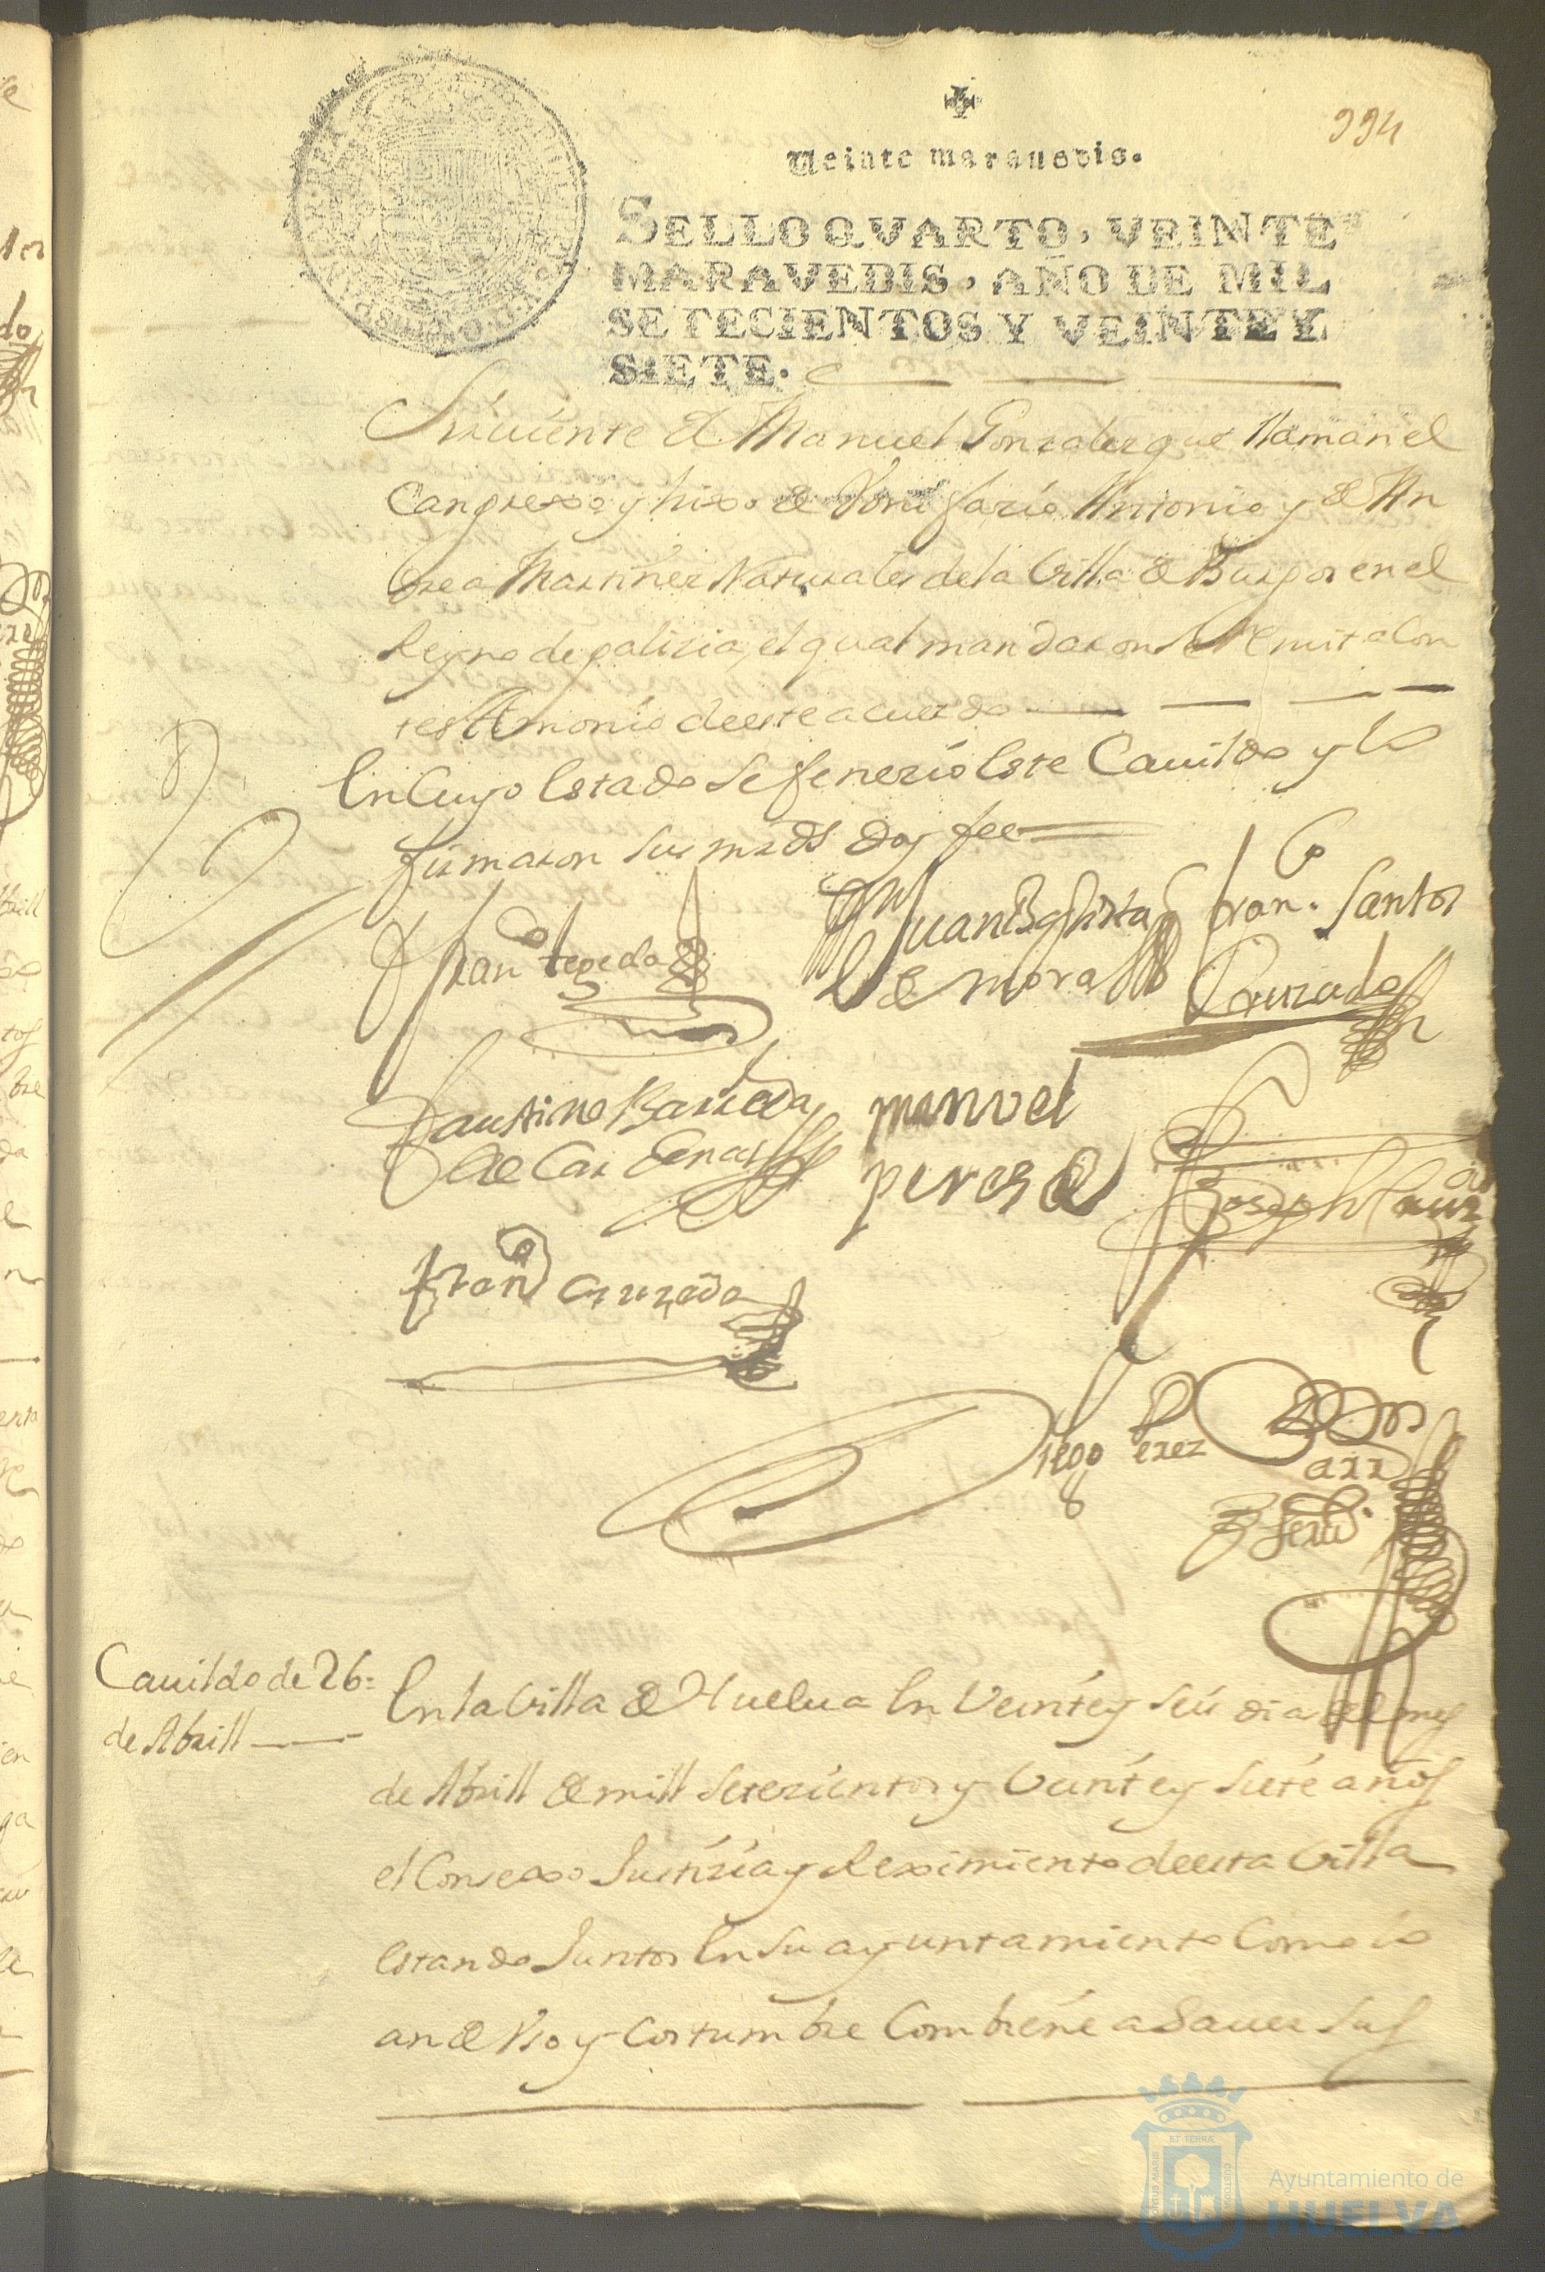 994
Veinte marauedis.
SELLO QVARTO, VEINTE
MARAVEDIS, AÑO DE MIL
SETECIENTOS Y VEINTE Y
SIETE.
Siruiente de Manuel Gonzalez que llaman el
Cangrexo y hixo de Bonifazio Antonio y de An
drea Martinez Naturales de la Villa de Burgos en el
Reyno de galizia, el qual mandaron se Remita Con
testimonio de este acuerdo
En Cuyo Estado se fenezio Este Cauildo y lo
firmaron sus mrds doy fee
Franco tegeda
Juan Baptista
de mora
Franco Santos
Cruzado
Faustino Barreda
de Cardenas
manuel
peres
Joseph
Franco Cruzado
Diego Perez
Cauildo de 26
de Abrill
En la Villa de Huelua En Veinte y seis dias del mes
de Abrill de mill setezientos y Veinte y siete años
el Consexo Justizia y Reximiento de esta Villa
Estando Juntos En su ayuntamiento Como lo
an de Vso y Costumbre Combiene a Sauer Sus
Ayuntamiento de
HUELVA